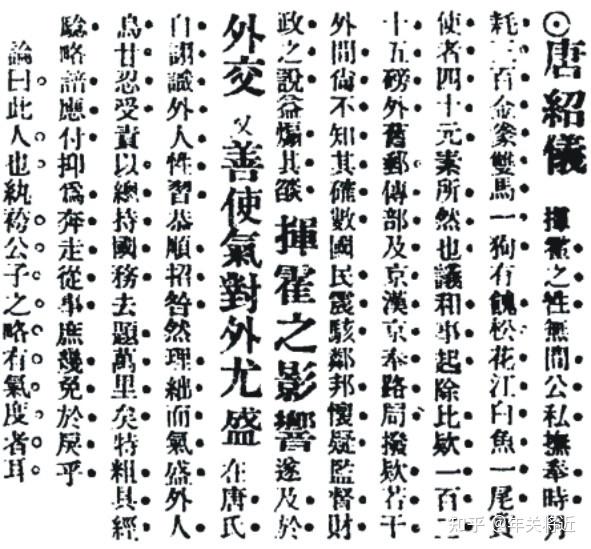 ⊙唐紹儀 揮霍之性無間公私撫奉時月
耗三百金豢雙馬一狗有餽松花江白魚一尾賞
使者四十元素所然也議和事起除比欵一百二
十五磅外舊郵傳部及京漢京奉路局撥欵若干
外間尙不知其確數國民震駭鄰邦懷疑監督財
政之說益煽其燄 揮霍之影響遂及於
外交 又善使氣對外尤盛 在唐氏
自詡識外人性習恭順招咎然理絀而氣盛外人
烏甘忍受責以總持國務去題萬里矣特粗具經
驗略諳應付抑爲奔走從事庶幾免於戾乎
論曰此人也紈袴公子之略有氣度者耳
知乎 @年关将近